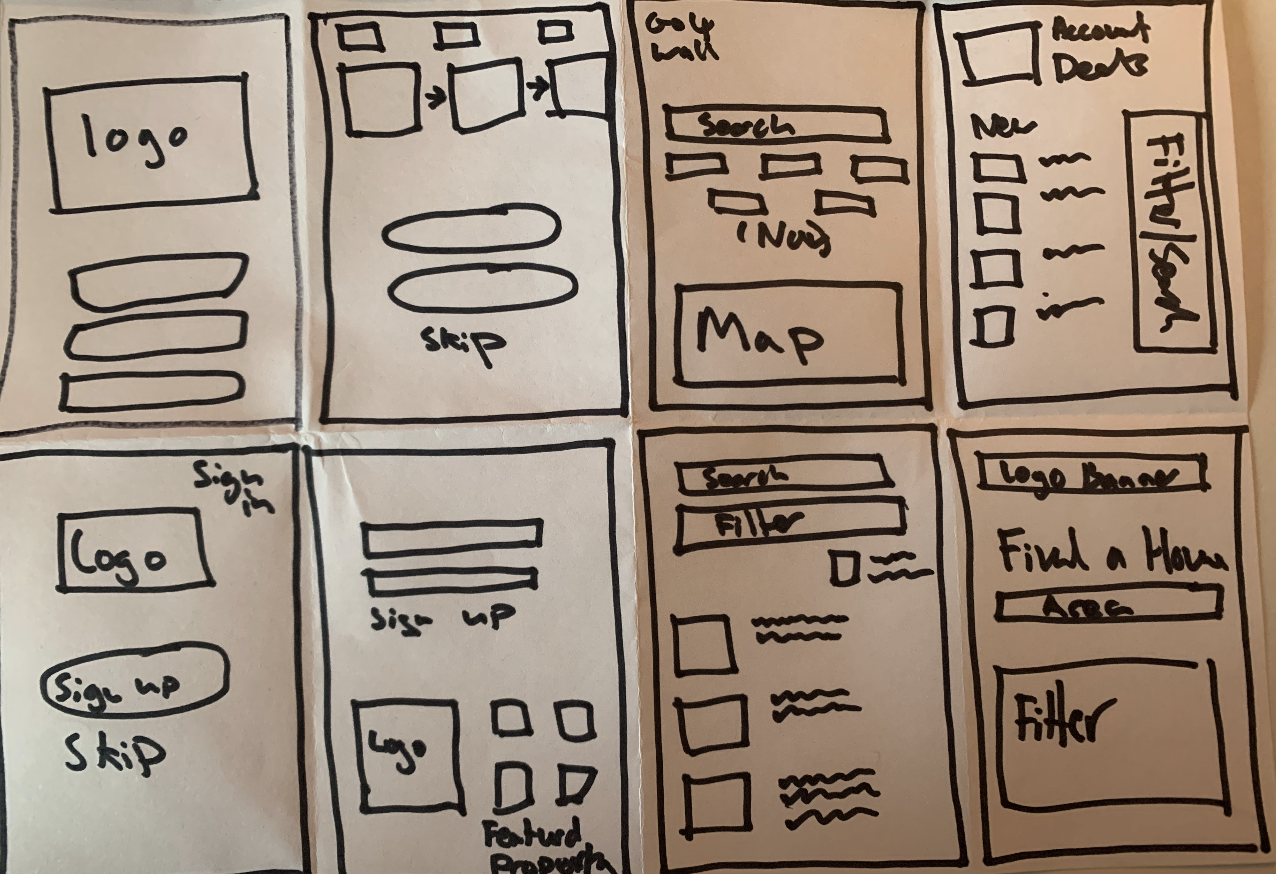 logo
Skip
Search
Map
Account
New
Filter/Search
Sign
in
Logo
Sign up
Skip
Sign up
Logo
Featurd
Property
Search
Filter
Logo Banner
Find a Home
Area
Filter